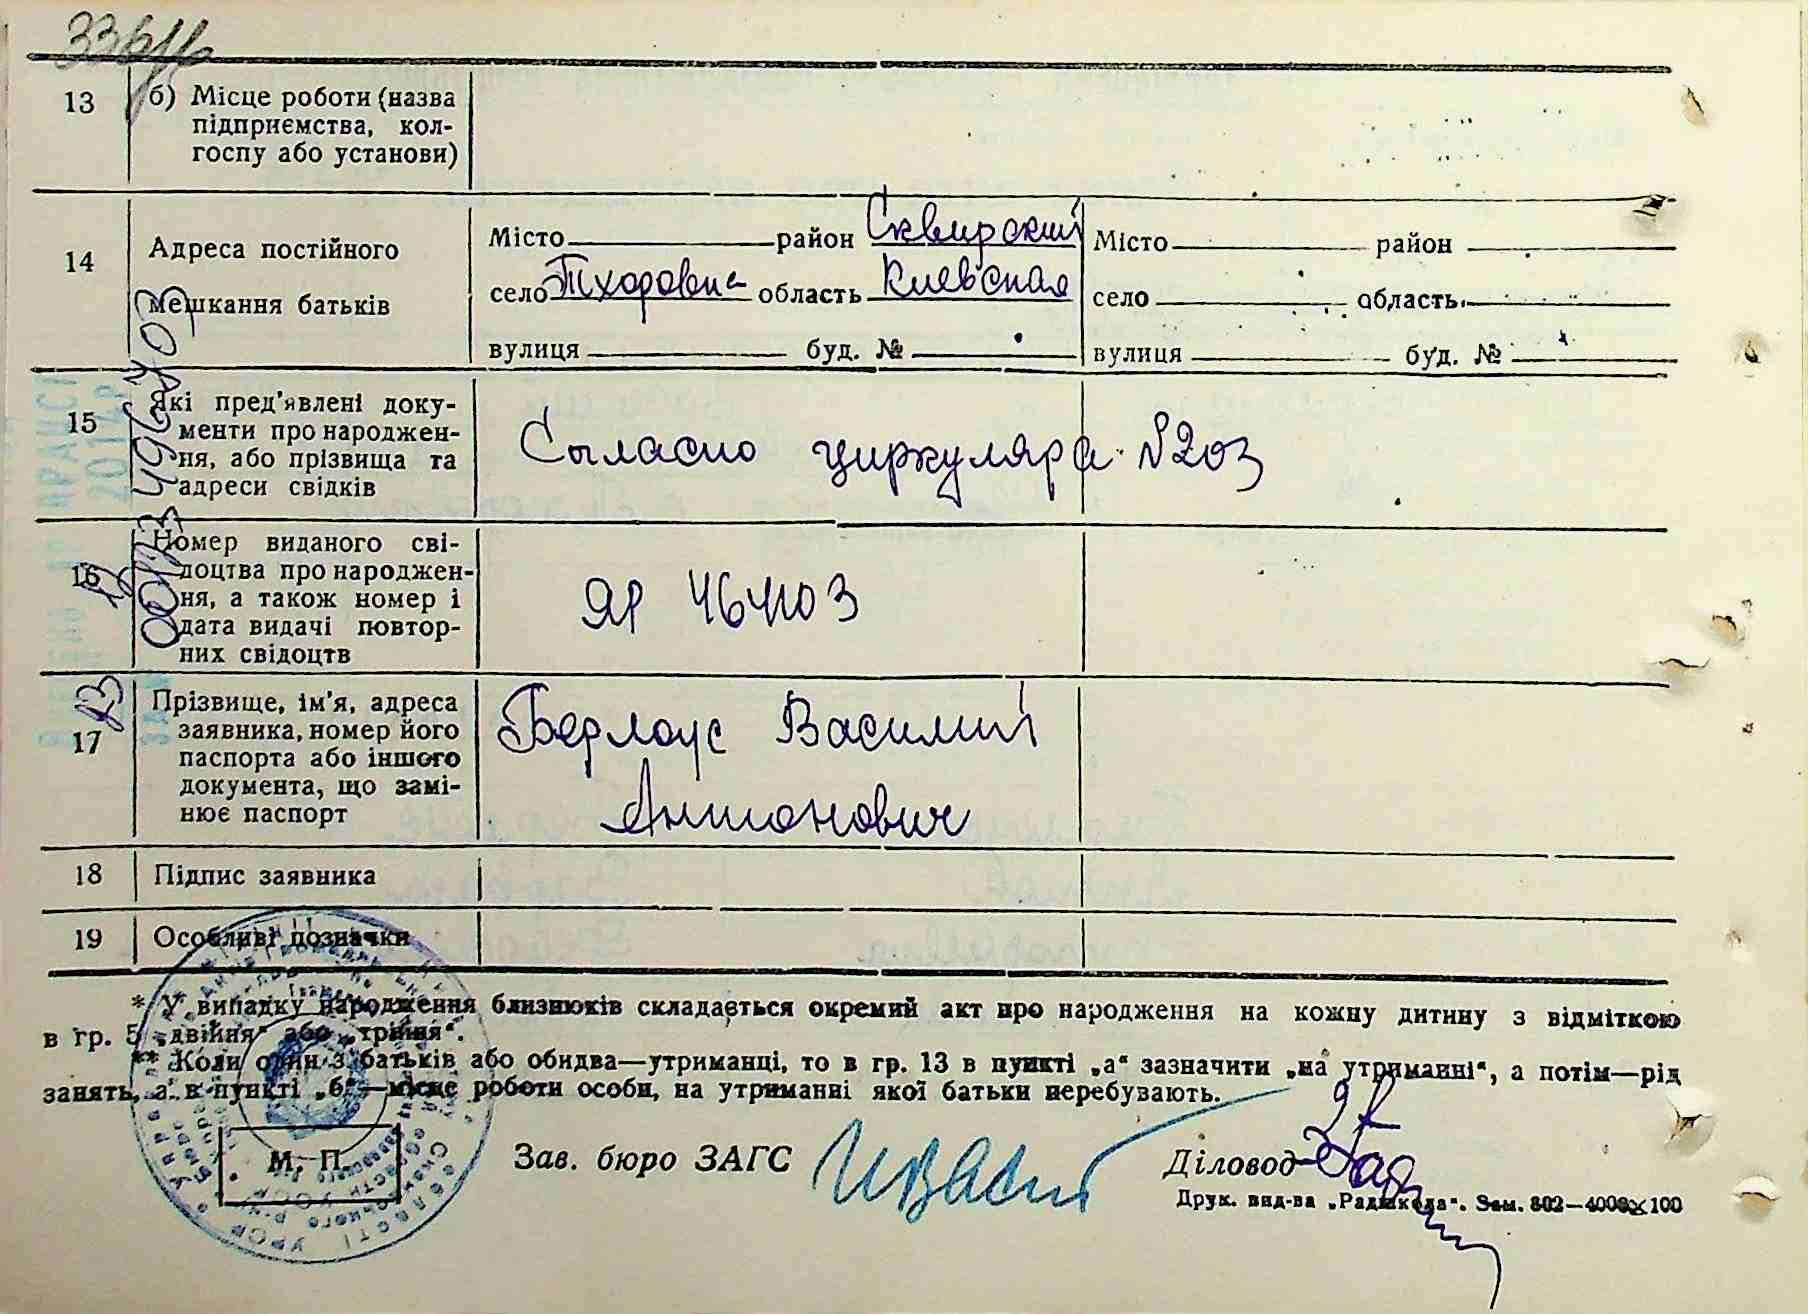 13 б) Місце роботи (назва
підприємства, кол-
госпу або установи)
14 Адреса постійного
мешкання батьків
Місто район Сквирский
село Тхоровка область Киевская
вулиця буд. №
Місто район
село область
вулиця буд. №
15 Які пред'явлені доку-
менти про народжен-
ня, або прізвища та
адреси свідків
Сыгласно циркуляра №203
16 Номер виданого сві-
доцтва про народжен-
ня, а також номер і
дата видачі повтор-
них свідоцтв
ЯР
17 Прізвище, ім'я, адреса
заявника, номер його
паспорта або іншого
документа, що замі-
нює паспорт
Василий
Антонович
18 Підпис заявника
19 Особливі позначки
* У випадку народження близнюків складається окремий акт про народження на кожну дитину з відміткою
в гр. 5 „двійня“ або „трійня“.
** Коли один з батьків або обидва—утриманці, то в гр. 13 в пункті „а“ зазначити „на утриманні“, а потім—рід
занять, а в пункті „б“—місце роботи особи, на утриманні якої батьки перебувають.
М. П.
Зав. бюро ЗАГС
Діловод
Друк. вид-ва „Радшкола“. Зам. 802—4000×100